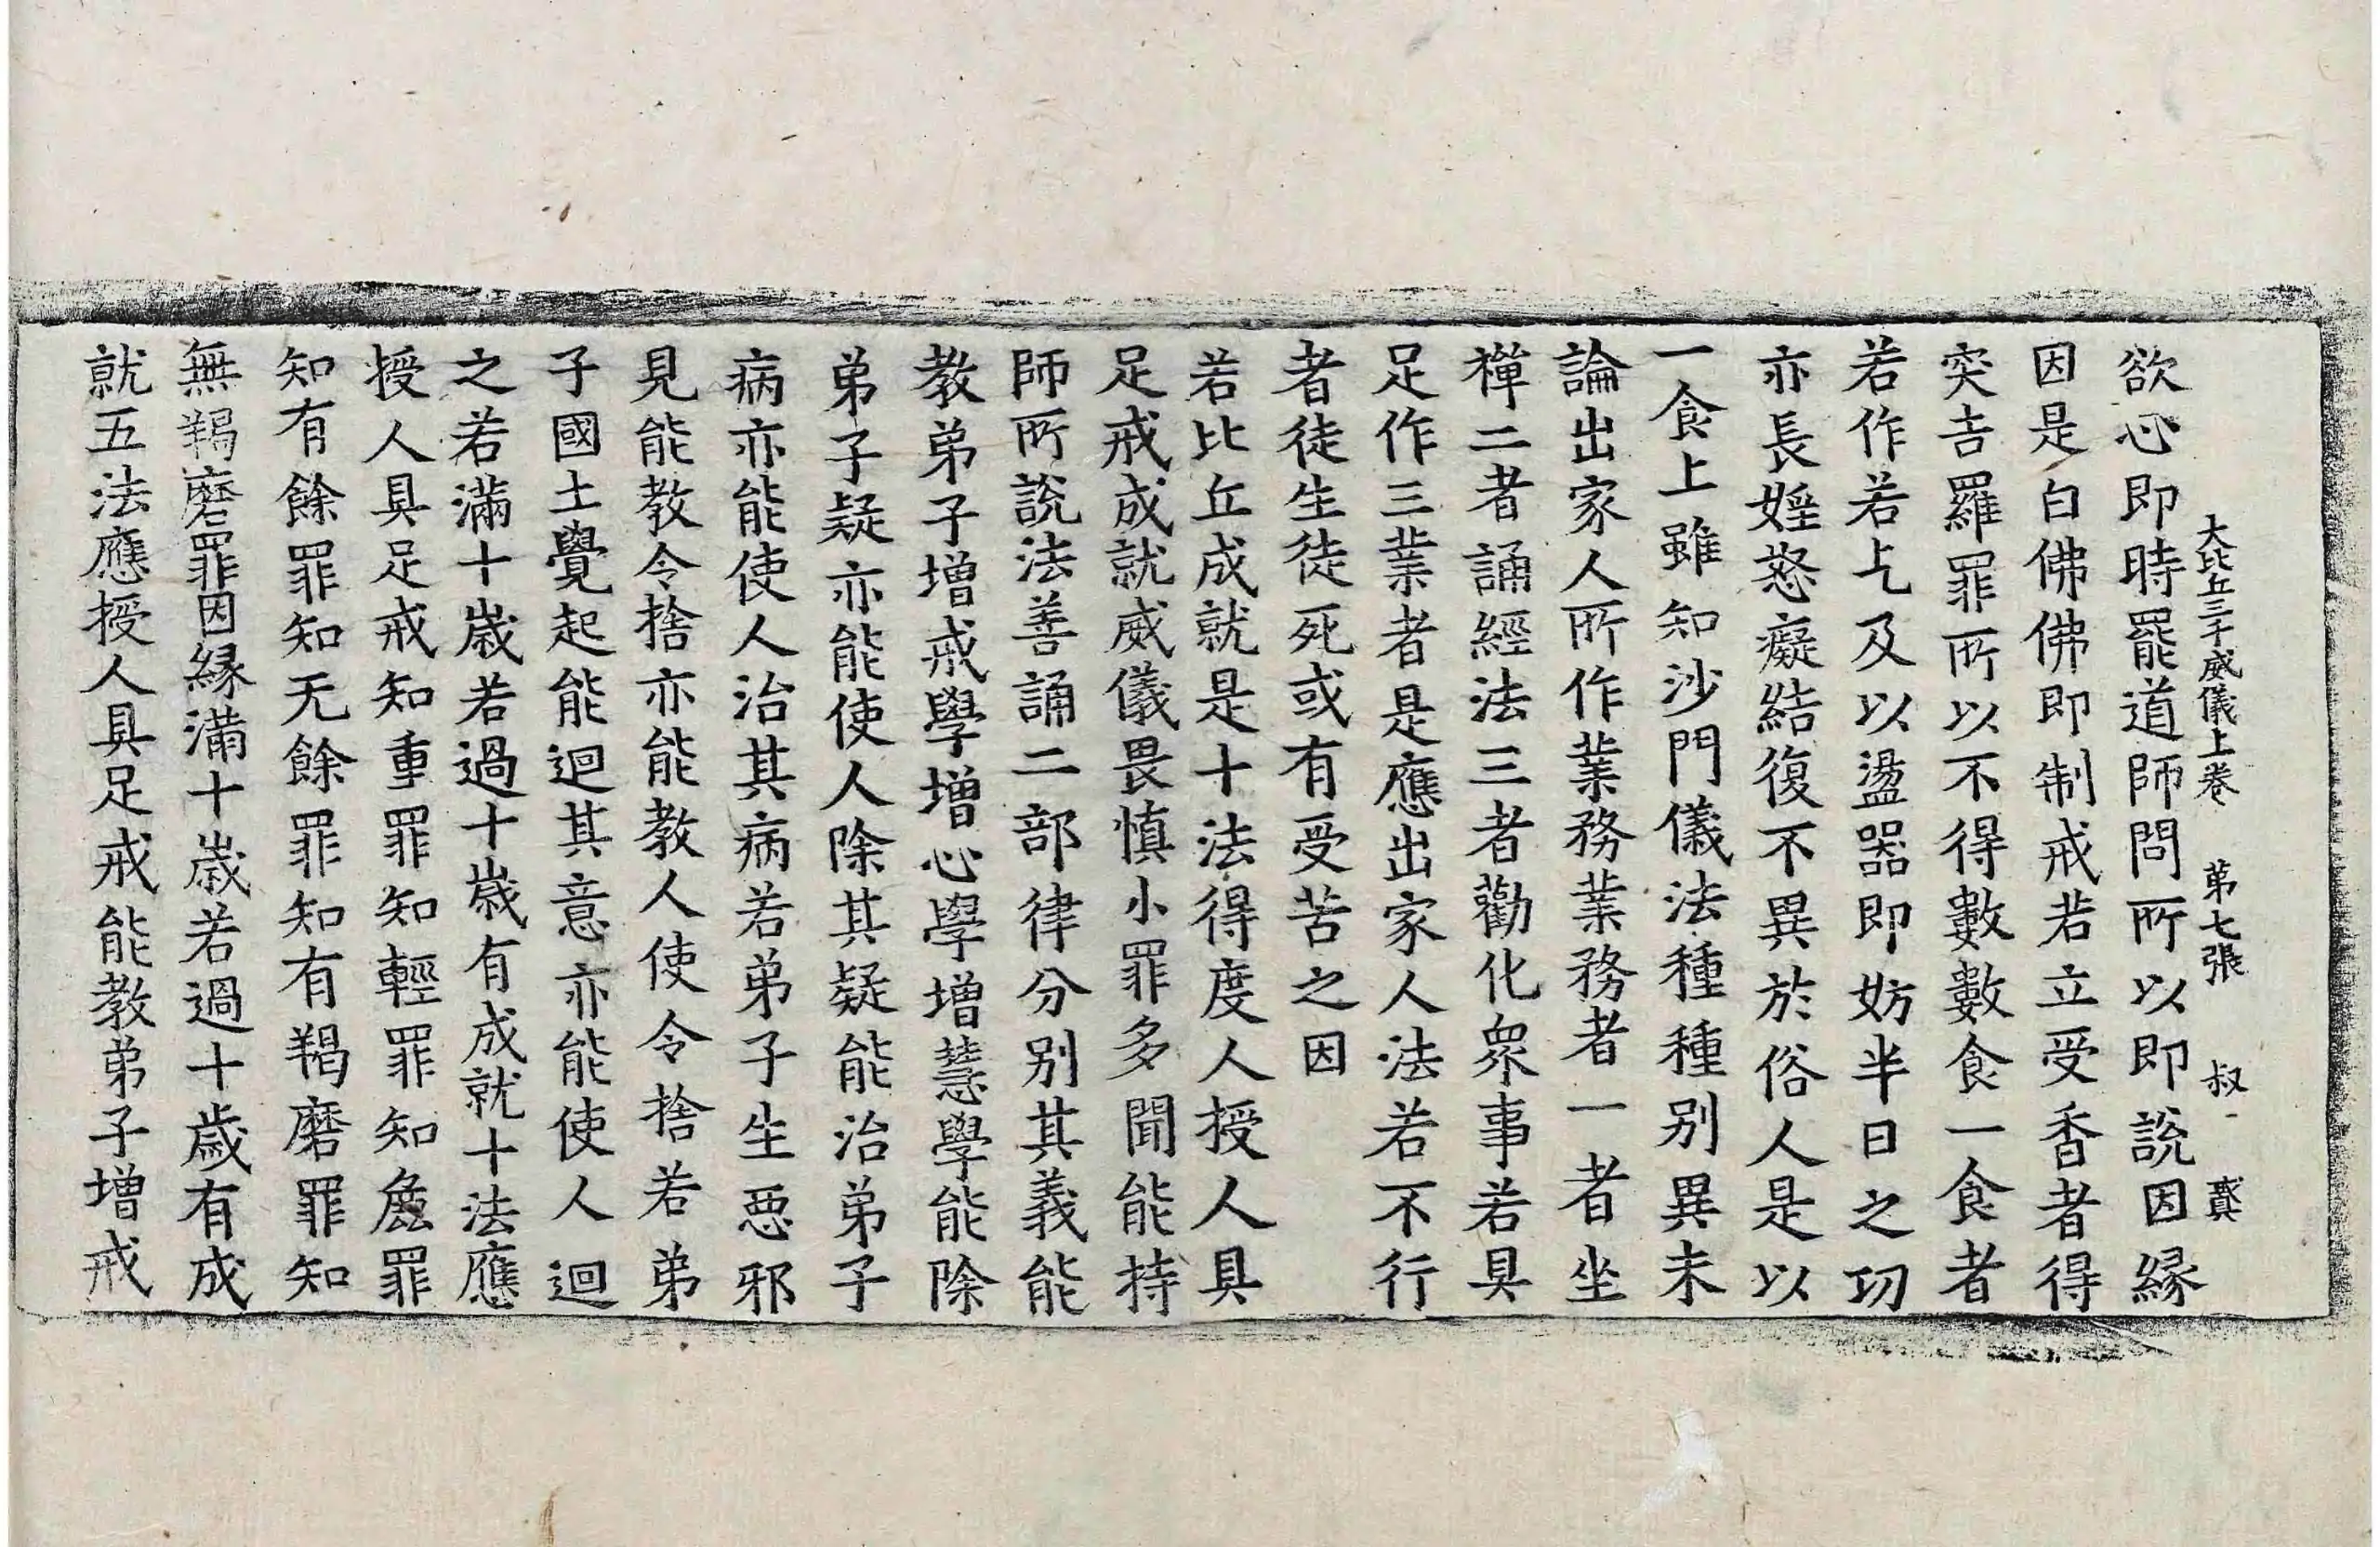 大比丘三千威儀上卷　第七張　叔
欲心即時罷道師問所以即說因緣
因是白佛佛即制戒若立受香者得
突吉羅罪所以不得數數食一食者
若作若乞及以盪器即妨半日之功
亦長婬怒癡結復不異於俗人是以
一食上雖知沙門儀法種種別異未
論出家人所作業務業務者一者坐
禪二者誦經法三者勸化眾事若具
足作三業者是應出家人法若不行
者徒生徒死或有受苦之因
若比丘成就是十法得度人授人具
足戒成就威儀畏慎小罪多聞能持
師所說法善誦二部律分別其義能
教弟子增戒學增心學增慧學能除
弟子疑亦能使人除其疑能治弟子
病亦能使人治其病若弟子生惡邪
見能教令捨亦能教人使令捨若弟
子國土覺起能迴其意亦能使人迴
之若滿十歲若過十歲有成就十法應
授人具足戒知重罪知輕罪知麁罪
知有餘罪知无餘罪知有羯磨罪知
無羯磨罪因緣滿十歲若過十歲有成
就五法應授人具足戒能教弟子增戒